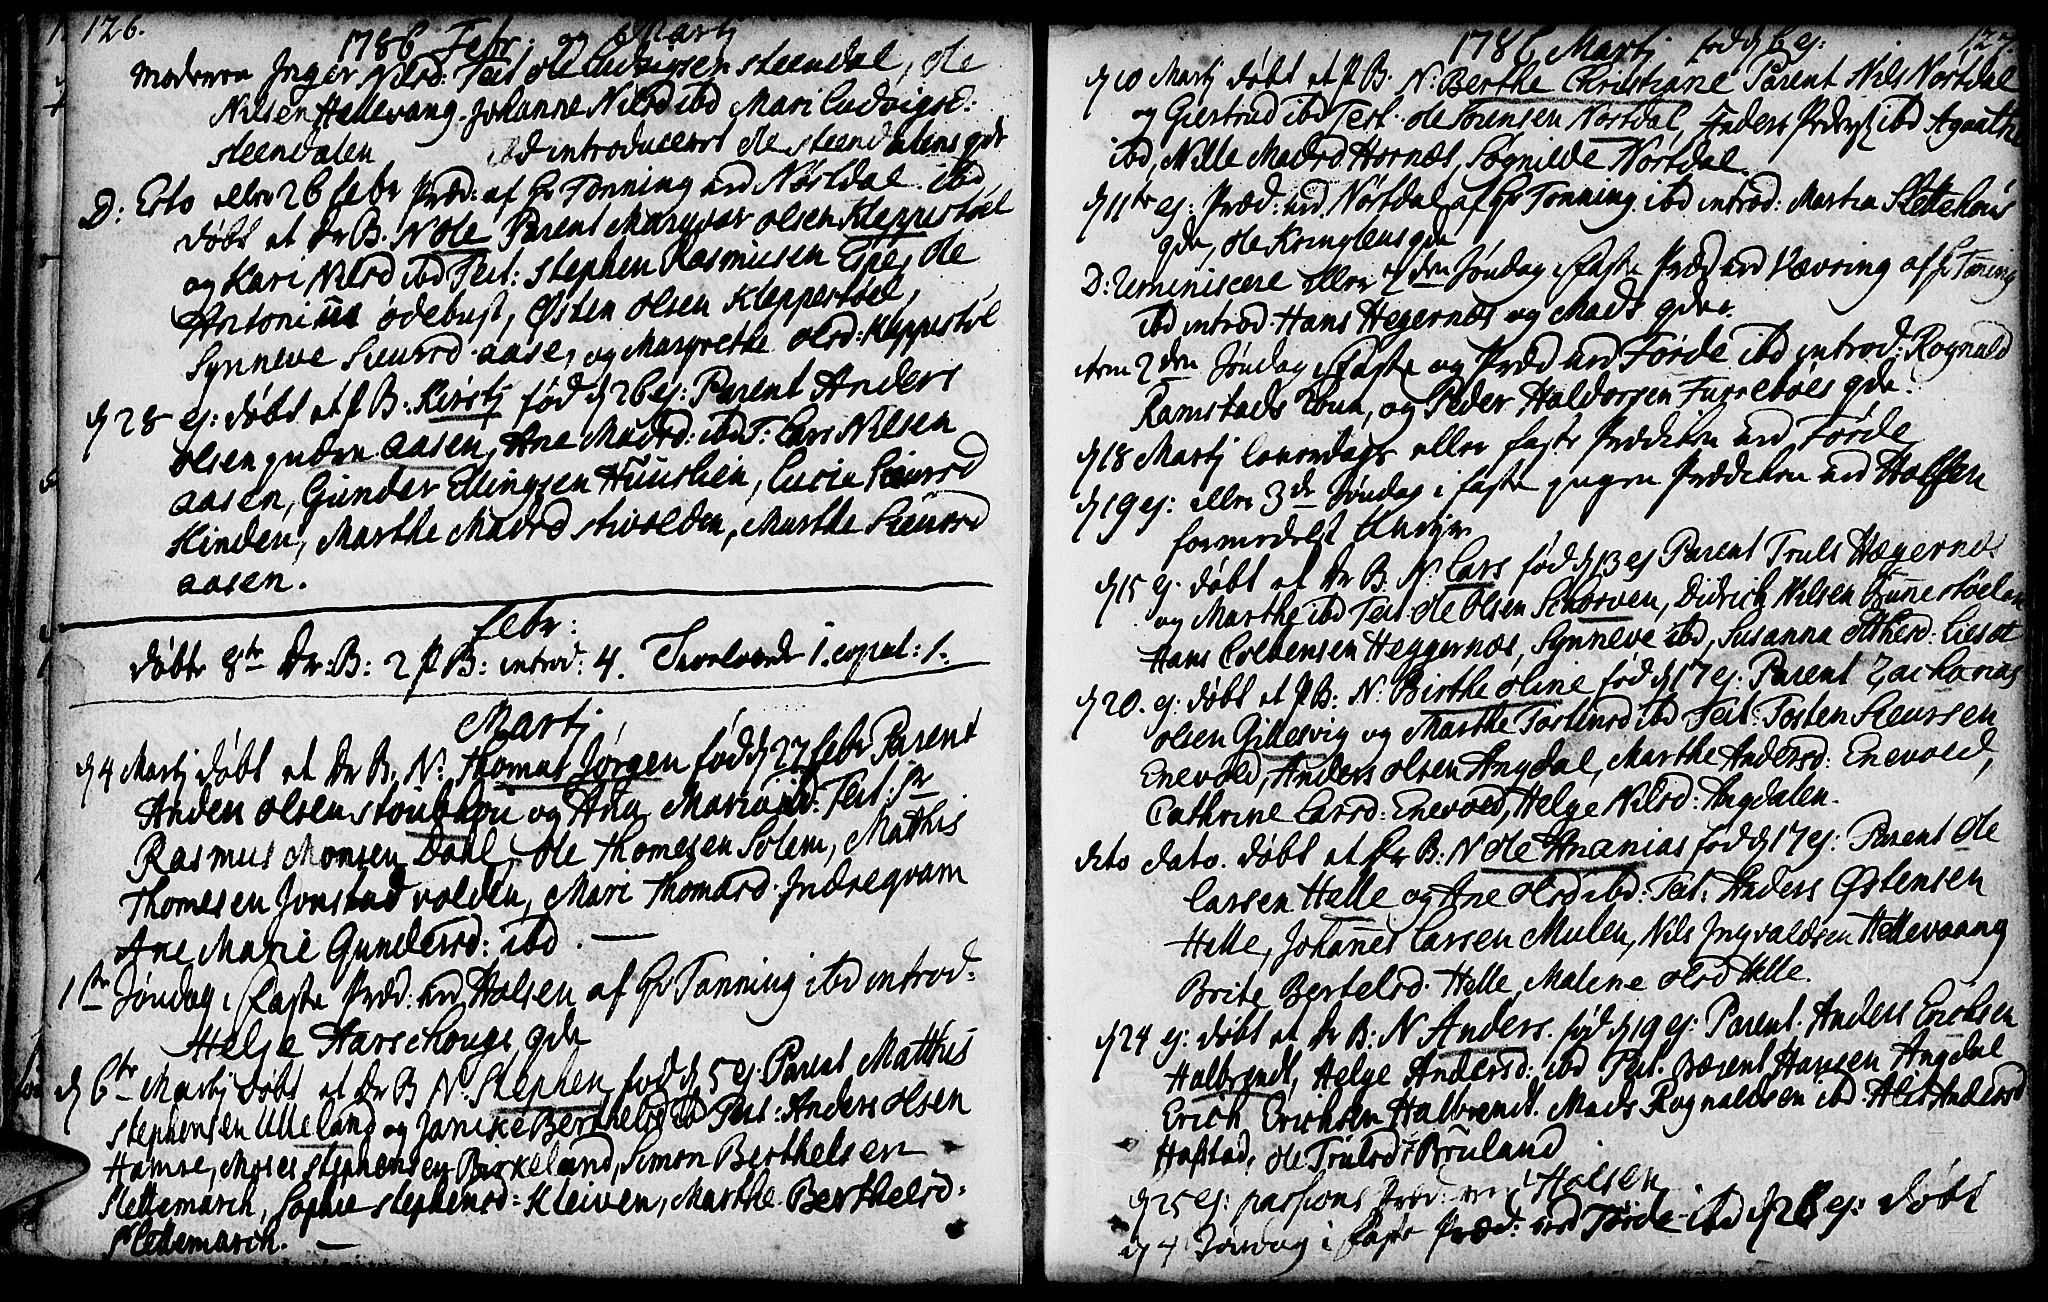 126.
1786 Febr. og Martj
moderen Inger Nilsd: Test Ole Ludvigsen Steendal, Ole
Nilsen Hellevang. Johanne Nilsd ibd Mari Ludvigsd:
Steendalen ibd introduceret Ole Steendalens qde
D: Esto eller 26 febr Præd: af Hr Tonning ved Nørdal. ibd
døbt et Dr B. N Ole Parent Margvar Olsen Kleppestøel
og Kari Nilsd ibd Test: Stephen Rasmusen Espe, Ole
Antonius ødebugt, Østen Olsen Kleppestøel,
Synneve Siursd aase, og Margrethe Olsd: Kleppestøl
d 28 ej: døbt et P B: Kirstj fød d 26 ej: Parent Anders
Olsen Aasen, Ane Madsd: ibd T: Lars Nilsen
Aasen, Gunder Ellingsen Huuslien, Lucie Siursd
Hinden, Marthe Madsd Sivolden, Marthe Siursd
aasen.
Febr:
døbte 8te Dr: B: 2 P B: introd: 4. Trolovede 1. copul: 1.
Martj
d 4 Martj døbt et Dr B. N. Thomas Jørgen fød d 27 febr Parent
Anders Olsen og Ana Maria ibd: Test: Sr
Rasmus Monsen Dahl, Ole Thomesen Solem, Mathis
Thomesen Jonstadvolden, Mari Thomasd Indregvam
Ane Marie Gundersd: ibd.
1ste Søndag i Faste Præd: ved Holsen af Hr Tonning ibd introd:
Helge Aarschougs qde
d 6te Martj døbt et Dr B N. Stephen fød d 5 ej: Parent Matthis
Stephensen Ulleland og Janike Berthelsd ibd Test: Anders Olsen
Hamre, Moses Stephensen Birkeland, Simon Berthelsen
Slettemarch, Sophie Stephensd: Kleiven, Marthe Berthelsd:
Slettemarch.
1786 Martj fød d 6 ej:
127.
d 10 Martj døbt et P B. N. Berthe Christiane Parent Nils Nørdal
og Giertrud ibd Test. Ole Sørensen Nørdal, Anders ibd Agathe
ibd, Nille Madsd Hornæs, Sognilde Nørdal.
d 11te ej: Præd: ved Nørdal af Hr Tonning. ibd introd: Martin Slettehøus
qde, Ole Kringlens qde
D: Reminiscere eller 2den Søndag i Faste Præd ved Nævring af Hr Tonning
ibd introd. Hans Hegernæs og Mads qder.
item 2den Søndag i Faste og Præd ved Førde ibd introd: Rognald
Ramstads kone, og Peder Haldorsen Furrebøes qde.
d 18 Martj Løverdags eller faste Prædiken ved Førde
d 19 ej: eller 3de Søndag i Faste ingen Prædiken ved Holssen
formedelst Uveyr
d 15 ej. døbt et Dr B. N. Lars fød d 13 ej Parent Truls Hægernæs
og Marthe ibd Test. Ole Olsen Schorven, Didrich Nilsen Grunnestøelan
Hans Colbensen Heggernæs, Synneve ibd, Susanna Olthesd:
d 20. ej: døbt et P B: N. Birthe Oline fød d 17 ej: Parent Zacharias
Olsen Gillesvig og Marthe Tostensd ibd Test. Tosten Siursen
Enevold, Anders Olsen Angdal, Marthe Andersd: Enevold,
Cathrine Larsd: Enevold, Helge Nilsd: Angdalen.
dito dato. døbt et Dr B: N Ole Ananias fød d 17 ej: Parent Ole
Larsen Helle og Ane Olsd ibd: Test: Anders Østensen
Helle, Johannes Larsen Mulen, Nils Ingvaldsen Hellevaang
Brite Bertelsd. Helle, Malene Olsd Helle.
d 24 ej: døbt et Dr B: N Anders. fød d 19 ej: Parent. Anders Erichsen
Halbrendt, Helge Andersd: ibd Test. Bærent Hansen Angdal
Erich Erichsen Halbrendt. Mads Rognaldsen ibd. Alis Andersd
Hafstad, Ole Trulsd Bruland
d 25 ej: passions Præd: ved Holsen
d 4 Søndag i Faste Præd: ved Førde ibd d 26 ej: døbt